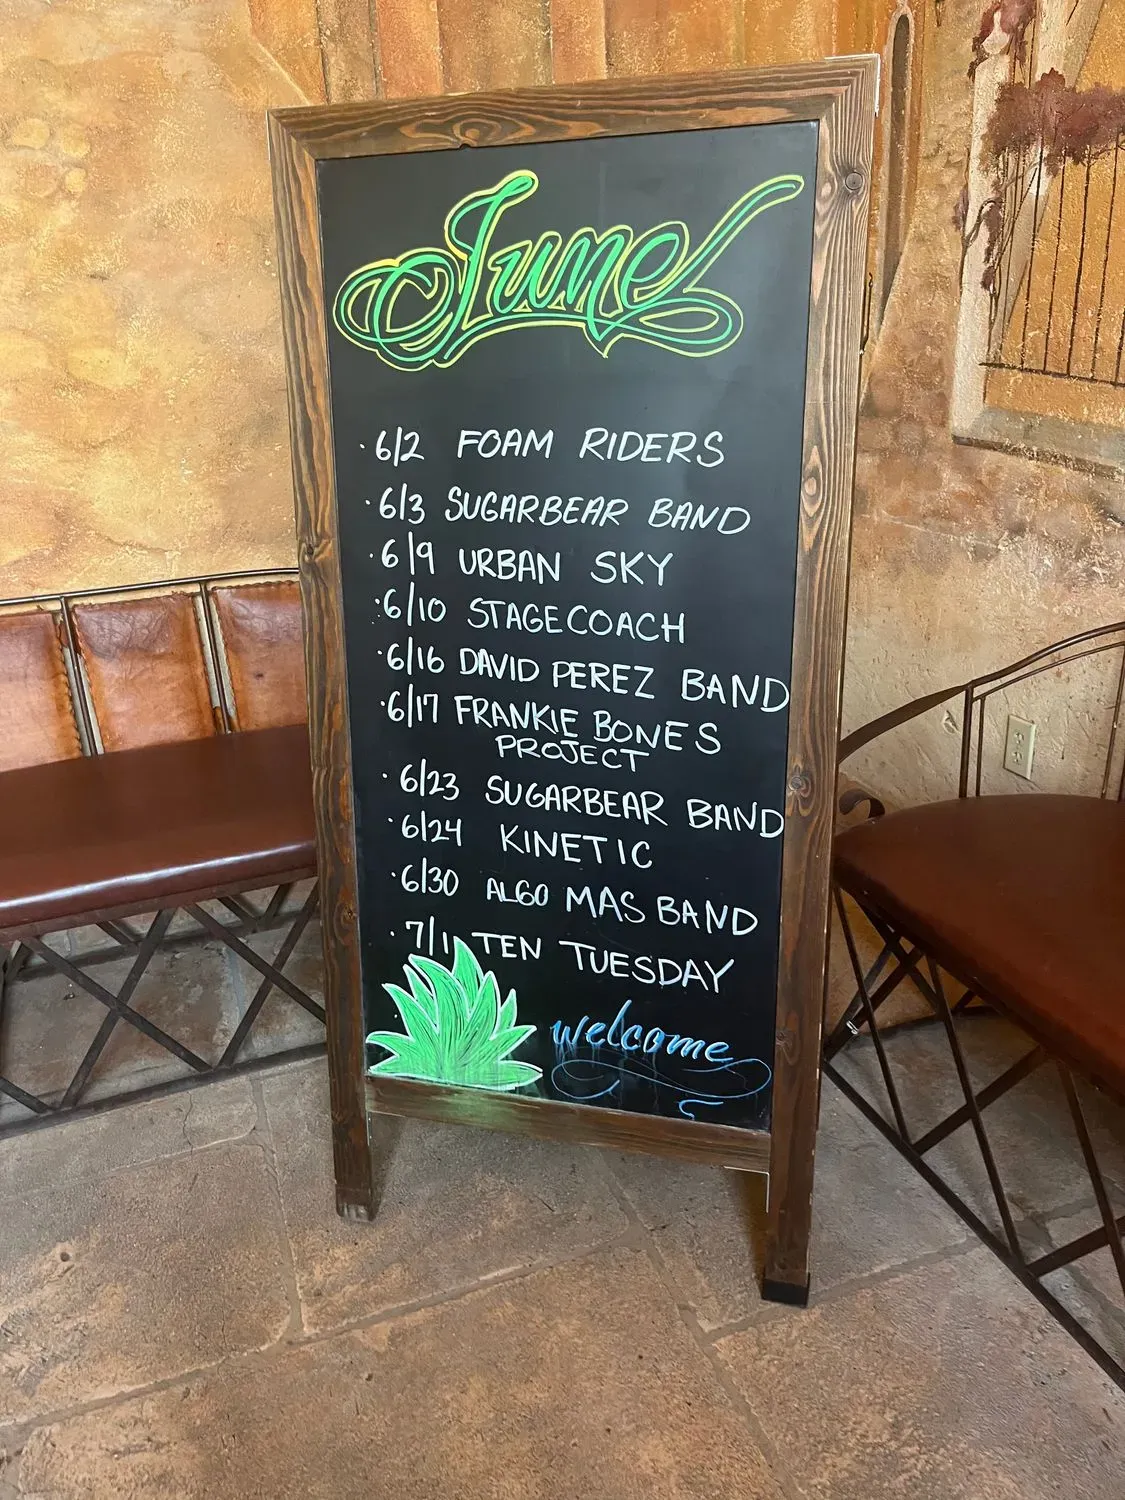 June
· 6/2 FOAM RIDERS
· 6/3 SUGARBEAR BAND
· 6/9 URBAN SKY
· 6/10 STAGECOACH
· 6/16 DAVID PEREZ BAND
· 6/17 FRANKIE BONES
PROJECT
· 6/23 SUGARBEAR BAND
· 6/24 KINETIC
· 6/30 ALGO MAS BAND
· 7/1 TEN TUESDAY
welcome